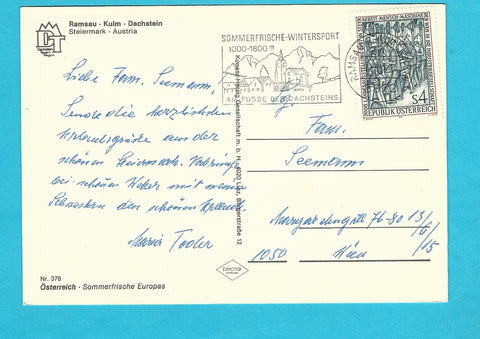 Ramsau - Kulm - Dachstein
Steiermark - Austria
DT
SOMMERFRISCHE-WINTERSPORT
1000-1800 m
AM FUSSE DES DACHSTEINS
RAMSAU
ARBEIT-MENSCH-MASCHINE
S4
REPUBLIK ÖSTERREICH
Liebe Fam. Seemann,
Sende die herzlichsten
Urlaubsgrüße aus der
schönen Steiermark. Verbringe
bei schönen Wetter mit meinen
Schwestern den schönen Urlaub
Maria Toder
m. b. H., 4020 Linz,
Fam.
Seemann
Margaretengull 76-80 13/
6/
1050 Wien /15
Nr. 378
Österreich - Sommerfrische Europas